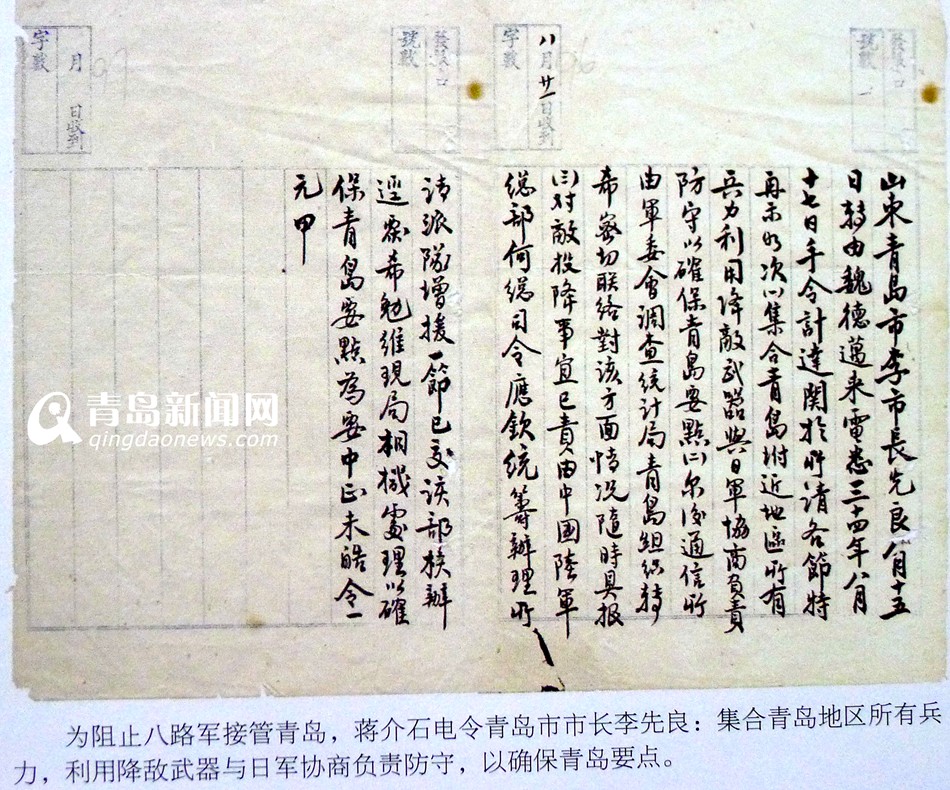 發報入口
號數
八月廿一日收到
字數
發報入口
號數
月 日收到
字數
山東青島市李市長先良八月十五
日轉由魏德邁来電悉三十四年八月
十七日手令計達関於所請各節特
再示如次㈠集合青島附近地區所有
兵力利用降敵武器與日軍協商負責
防守以確保青島要點㈡尔後通信所
由軍委會調查统計局青島組織轉
希密切联络對該方面情况隨時具报
㈢对敵投降事宜已责由中國陸軍
总部何总司令應欽统籌辦理所
請派隊增援一節已交该部核辦
逕覆希勉维現局相機處理以確
保青島要點為要中正未皓令一
元甲
青岛新闻网
qingdaonews.com
为阻止八路军接管青岛，蒋介石电令青岛市市长李先良：集合青岛地区所有兵
力，利用降敌武器与日军协商负责防守，以确保青岛要点。